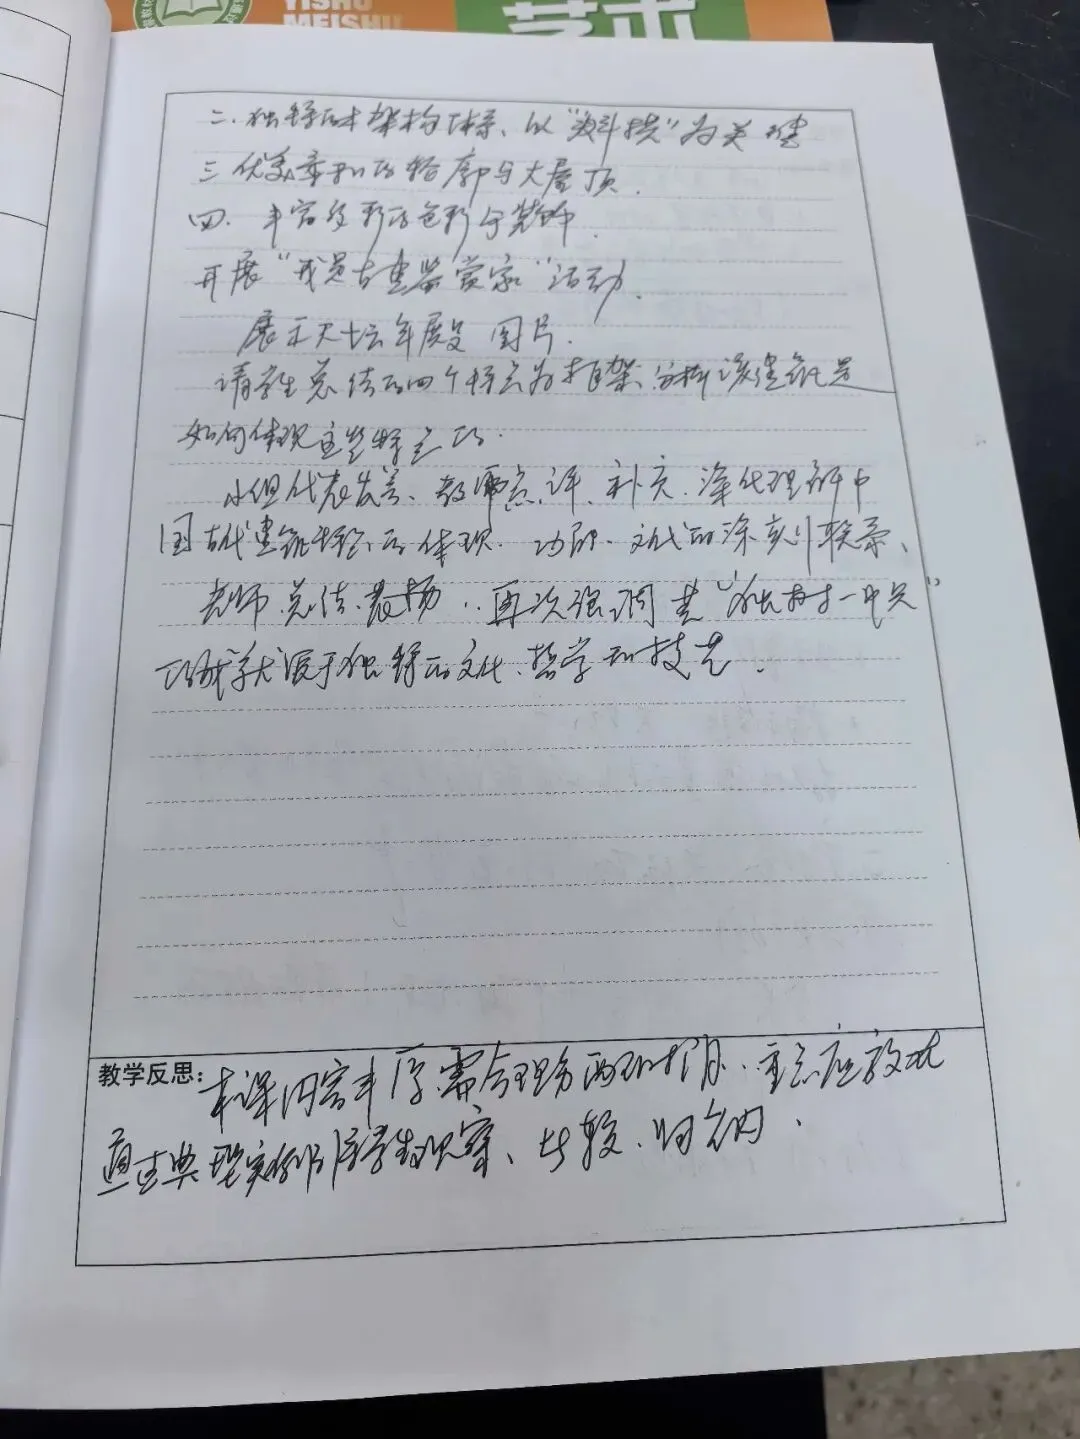 YISHU
MEISHU
艺术
二、独特的木架构体系、以“斗拱”为关键
三 优美柔和的轮廓与大屋顶.
四. 丰富多彩的色彩与装饰.
开展“我是古建鉴赏家”活动.
展示天坛祈年殿图片.
请学生总结的四个特点为框架分析该建筑是
如何体现这些特点的.
小组代表发言、教师点评、补充.深化理解中
国古代建筑的体现.功能.文化的深刻联系、
老师总结.表扬..再次强调其“独树一帜”
的成就源于独特的文化、哲学和技艺.
教学反思:
本课内容丰厚.需合理分配时间.重点应放在
通过典型实例引导学生观察、比较、归纳.